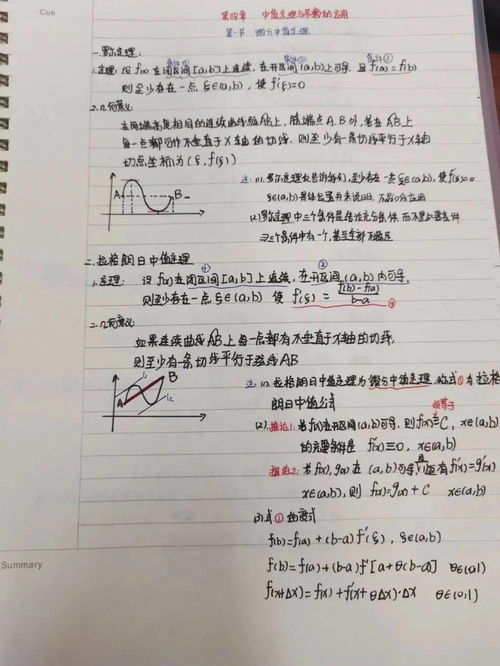 Cue
第四章 中值定理与导数的应用
第一节 微分中值定理
一.罗尔定理:
条件① 条件② 条件③
1.定理: 设 f(x) 在闭区间[a,b]上连续, 在开区间(a,b)上可导 且 f(a)=f(b)
则至少存在一点 ξ∈(a,b), 使 f'(ξ)=0
2.几何意义:
在两端高度相同的连续曲线弧AB上, 除端点A.B外, 若在AB上
每一点都可作不垂直于X轴的切线, 则至少有一条切线平行于X轴
切点坐标为(ξ, f(ξ))
A B
注: (1). 罗尔定理仅告诉我们, 至少存在一点 ξ∈(a,b), 使f'(ξ)=0
ξ∈(a,b)具体位置并未说明, 不影响应用
(2)罗尔定理中三个条件是结论充分条件 而不是必要条件
⇒三个条件中有一个, 甚至全部不满足
二.拉格朗日中值定理
① ②
1.定理: 设 f(x)在闭区间[a,b]上连续, 在开区间(a,b)内可导,
则至少存在一点 ξ∈(a,b) 使 f'(ξ) = f(b)-f(a)/b-a ③
2.几何意义:
如果连续曲线AB上每一点都有不垂直于X轴的切线,
则至少有一条切线平行于弦线AB
A B l₁ l₂
注: (1). 拉格朗日中值定理为微分中值定理, 公式①为拉格
朗日中值公式
恒等于
(2). 推论1: 若f(x)在开区间(a,b)可导, 则f(x)≡C, x∈(a,b)
的充要条件是 f'(x)≡0, x∈(a,b)
推论2: 若f(x), g(x)在 (a,b)可导 且 有f'(x)=g'(x)
x∈(a,b), 则 f(x)=g(x)+C x∈(a,b)
(3)式①的变式
f(b)=f(a)+(b-a)f'(ξ), ξ∈(a,b)
f(b)=f(a)+(b-a)f'[a+θ(b-a)] θ∈(0,1)
f(x+Δx)=f(x)+f'(x+θΔx)·Δx θ∈(0,1)
Summary